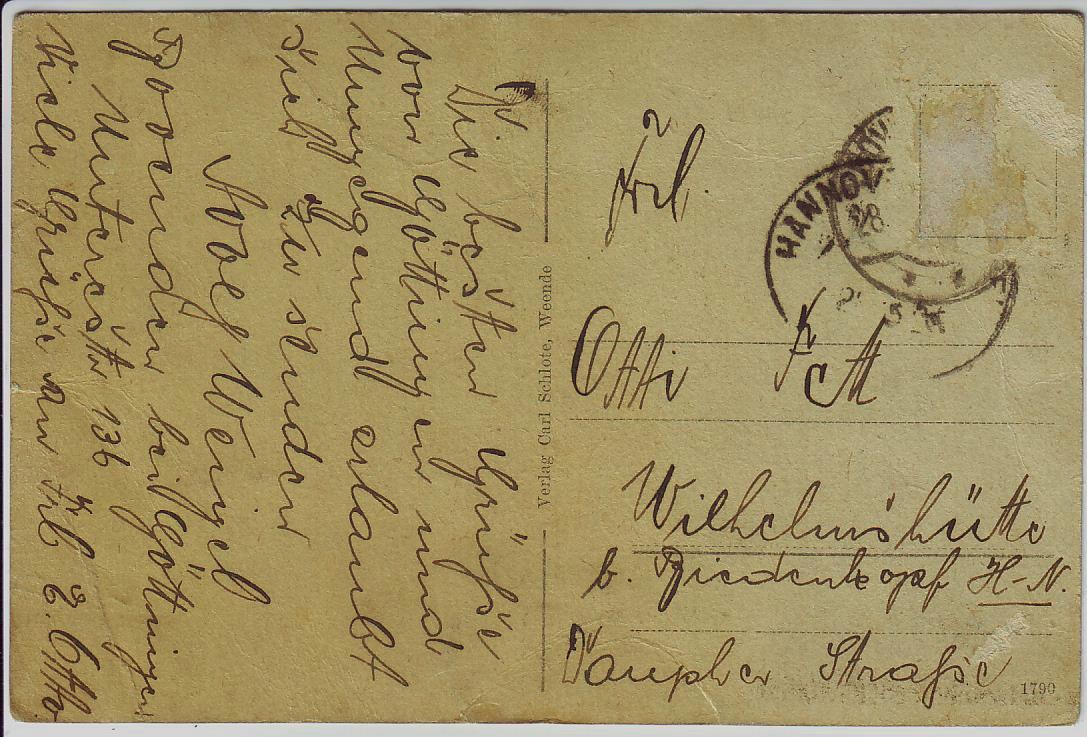 Die besten Grüße
von Göttingen und
Umgegend erlaubt
sich zu senden
Aug Wengel
Bovenden bei Göttingen
Unterestr 136
Viele Grüße an Frl E. Otto
Verlag Carl Schlote, Weende
HANNOVER
28
Frl.
Otti Fett
Wilhelmshütte
b. Biedenkopf H-N.
Dautpher Straße
1790